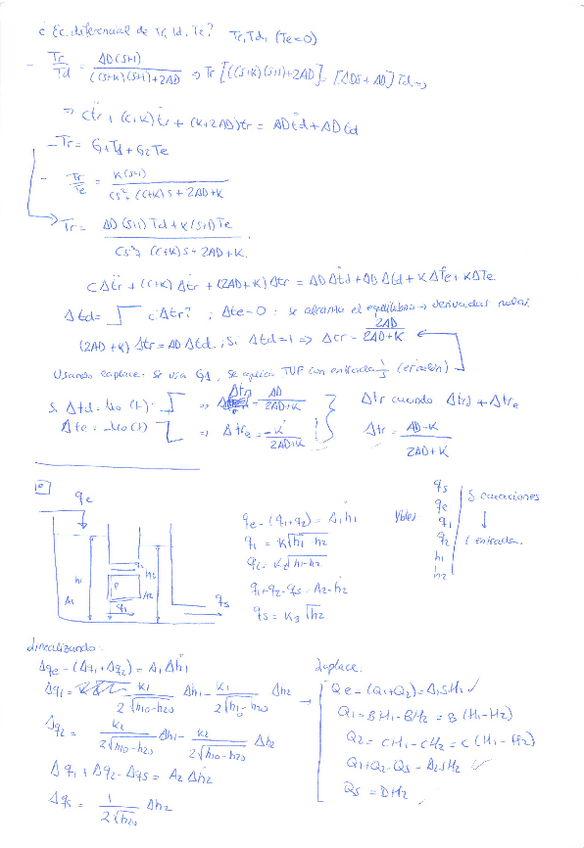 ¿ Ec. diferencial de Tr, Td, Te? Tr, Td, (Te=0)
- Tr/Td = AD(S+1)/((S+K)(S+1)+2AD) => Tr [((S+K)(S+1)+2AD] = [ADS+AD] Td =>
=> Cẗr + (C+K)ṫr + (K+2AD)tr = ADṫd + AD td
- Tr = G1Td + G2Te
- Tr/Te = K(S+1)/(CS²+(C+K)S+2AD+K)
Tr = (AD(S+1)Td + K(S+1)Te)/(CS²+(C+K)S+2AD+K.)
CΔẗr + (C+K)Δṫr + (2AD+K)Δtr = ADΔṫd + ADΔtd + KΔṫe + KΔTe.
Δtd = ¿Δtr? ; Δte=0 : se alcanza el equilibrio → derivadas nulas.
(2AD+K)Δtr = AD Δtd. ; Si Δtd=1 => Δcr = 2AD/(2AD+K)
Usando Laplace: Se usa G1, se aplica TVF con entrada 1/S (escalón)
Si Δtd = μo(t) : => Δtr = AD/(2AD+K) Δtr cuando Δtrd + Δtre
Δte = -μo(t) => Δtre = -K/(2AD+K) Δtr = (AD-K)/(2AD+K)
qe
h1
h2
q2
P
A2
A1
q1
qs
qe - (q1+q2) = A1ḣ1
q1 = K√(h1-h2)
q2 = K2√(h1-h2)
q1+q2-qs = A2ḣ2
qs = K3√h2
Vbles
qs
qe
q1
q2
h1
h2
5 ecuaciones
↓
1 entrada.
Linealizando:
Δqe - (Δq1+Δq2) = A1Δḣ1
Δq1 = K1/(2√(h10-h20)) Δh1 - K1/(2√(h10-h20)) Δh2
Δq2 = K2/(2√(h10-h20)) Δh1 - K2/(2√(h10-h20)) Δh2
Δq1 + Δq2 - Δqs = A2 Δḣ2
Δqs = 1/(2√h20) Δh2
Laplace.
Qe - (Q1+Q2) = A1SH1 ✓
Q1 = BH1 - BH2 = B(H1-H2)
Q2 = CH1 - CH2 = C(H1-H2)
Q1+Q2-QS = A2SH2 ✓
QS = DH2 ✓